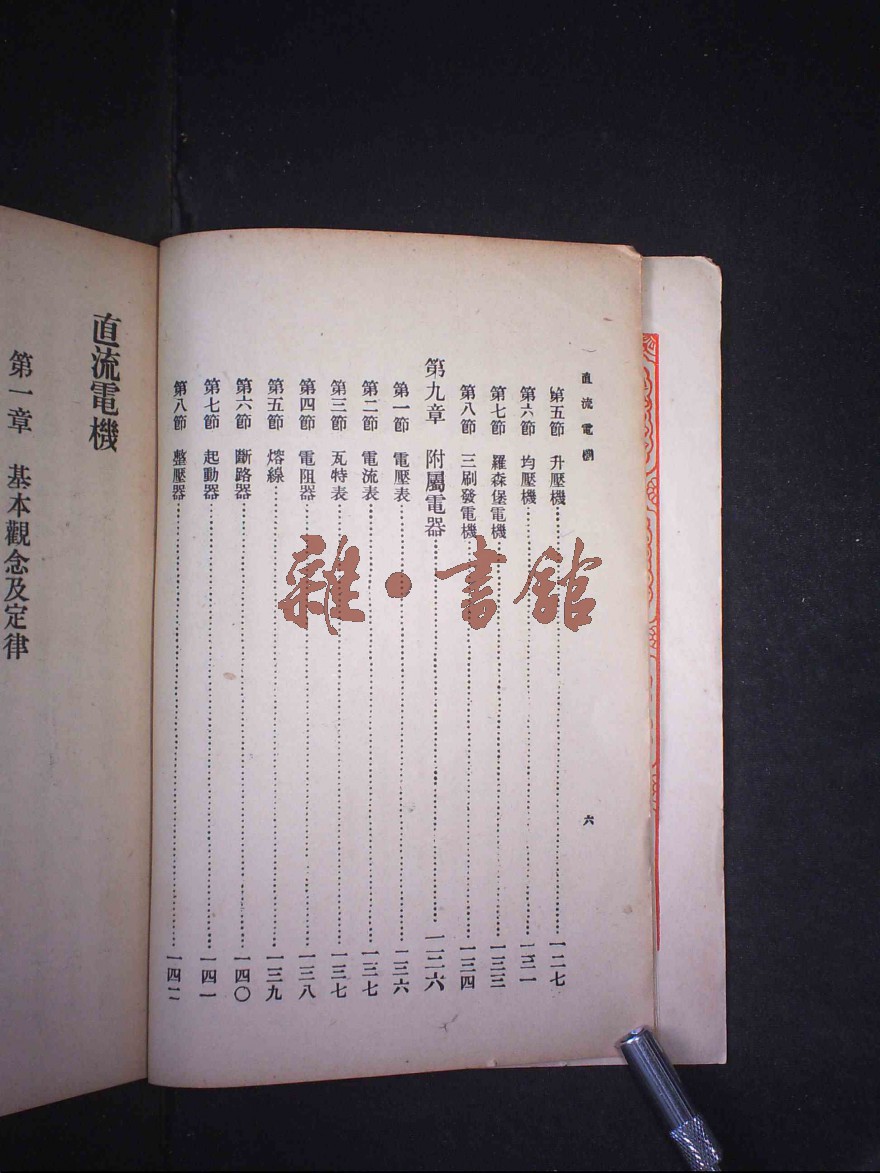 直流電機
六
第五節 升壓機……一二七
第六節 均壓機……一三一
第七節 羅森堡電機……一三三
第八節 三刷發電機……一三四
第九章 附屬電器……一三六
第一節 電壓表……一三六
第二節 電流表……一三七
第三節 瓦特表……一三七
第四節 電阻器……一三八
第五節 熔線……一三九
第六節 斷路器……一四〇
第七節 起動器……一四一
第八節 整壓器……一四二
直流電機
第一章 基本觀念及定律
雜·書館